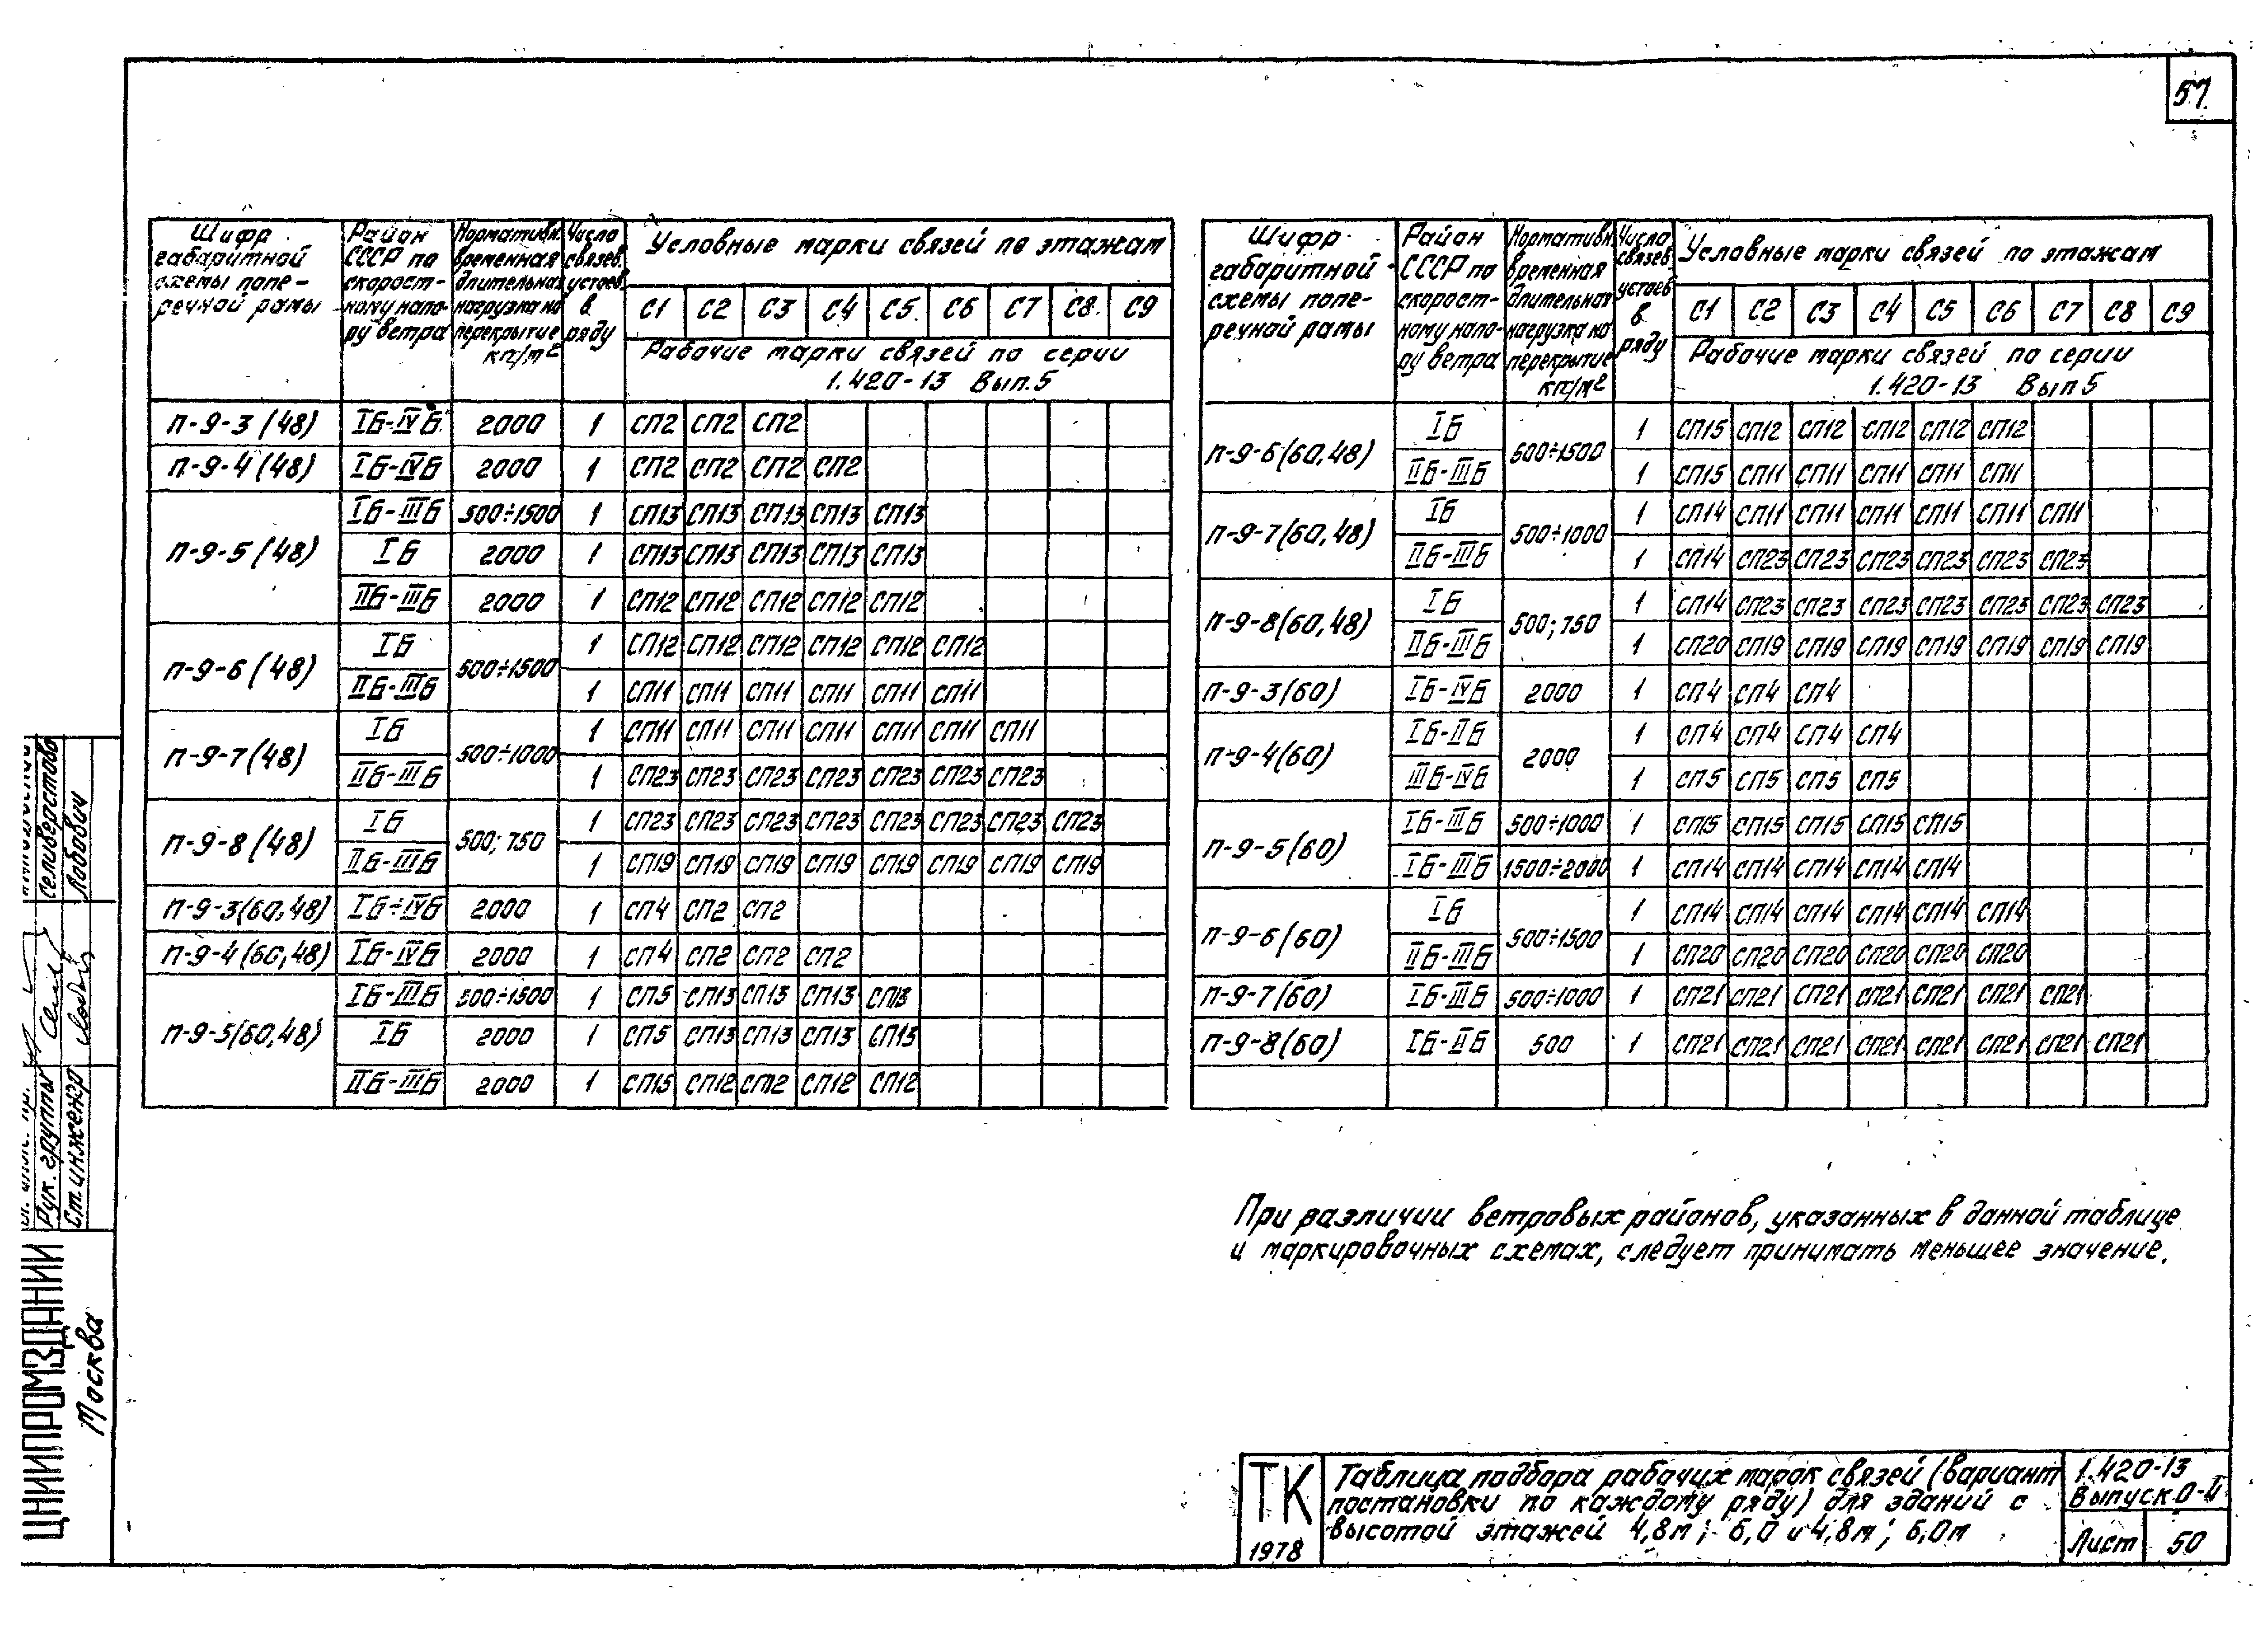 57
Шифр габаритной схемы попе-речной рамы | Район СССР по скорост-ному напо-ру ветра | Нормативн. временная длительная нагрузка на перекрытие кг/м² | Число связев. устоев в ряду | Условные марки связей по этажам
С1 С2 С3 С4 С5 С6 С7 С8 С9
Рабочие марки связей по серии
1.420-13 Вып.5
П-9-3 (48) IБ-IVБ 2000 1 СП2 СП2 СП2
П-9-4 (48) IБ-IVБ 2000 1 СП2 СП2 СП2 СП2
П-9-5 (48) IБ-IIIБ 500÷1500 1 СП13 СП13 СП13 СП13 СП13
IБ 2000 1 СП13 СП13 СП13 СП13 СП13
IIБ-IIIБ 2000 1 СП12 СП12 СП12 СП12 СП12
П-9-6 (48) IБ 500÷1500 1 СП12 СП12 СП12 СП12 СП12 СП12
IIБ-IIIБ 1 СП11 СП11 СП11 СП11 СП11 СП11
П-9-7 (48) IБ 500÷1000 1 СП11 СП11 СП11 СП11 СП11 СП11 СП11
IIБ-IIIБ 1 СП23 СП23 СП23 СП23 СП23 СП23 СП23
П-9-8 (48) IБ 500; 750 1 СП23 СП23 СП23 СП23 СП23 СП23 СП23 СП23
IIБ-IIIБ 1 СП19 СП19 СП19 СП19 СП19 СП19 СП19 СП19
П-9-3(60,48) IБ÷IVБ 2000 1 СП4 СП2 СП2
П-9-4 (60,48) IБ-IVБ 2000 1 СП4 СП2 СП2 СП2
П-9-5(60,48) IБ-IIIБ 500÷1500 1 СП5 СП13 СП13 СП13 СП13
IБ 2000 1 СП5 СП13 СП13 СП13 СП13
IIБ-IIIБ 2000 1 СП15 СП12 СП12 СП12 СП12
Шифр габаритной схемы попе-речной рамы | Район СССР по скорост-ному напо-ру ветра | Нормативн. временная длительная нагрузка на перекрытие кг/м² | Число связев. устоев в ряду | Условные марки связей по этажам
С1 С2 С3 С4 С5 С6 С7 С8 С9
Рабочие марки связей по серии
1.420-13 Вып 5
П-9-6(60,48) IБ 500÷1500 1 СП15 СП12 СП12 СП12 СП12 СП12
IIБ-IIIБ 1 СП15 СП11 СП11 СП11 СП11 СП11
П-9-7(60,48) IБ 500÷1000 1 СП14 СП11 СП11 СП11 СП11 СП11 СП11
IIБ-IIIБ 1 СП14 СП23 СП23 СП23 СП23 СП23 СП23
П-9-8(60,48) IБ 500; 750 1 СП14 СП23 СП23 СП23 СП23 СП23 СП23 СП23
IIБ-IIIБ 1 СП20 СП19 СП19 СП19 СП19 СП19 СП19 СП19
П-9-3(60) IБ-IVБ 2000 1 СП4 СП4 СП4
П-9-4(60) IБ-IIБ 2000 1 СП4 СП4 СП4 СП4
IIIБ-IVБ 1 СП5 СП5 СП5 СП5
П-9-5(60) IБ-IIIБ 500÷1000 1 СП15 СП15 СП15 СП15 СП15
IБ-IIIБ 1500÷2000 1 СП14 СП14 СП14 СП14 СП14
П-9-6(60) IБ 500÷1500 1 СП14 СП14 СП14 СП14 СП14 СП14
IIБ-IIIБ 1 СП20 СП20 СП20 СП20 СП20 СП20
П-9-7(60) IБ-IIIБ 500÷1000 1 СП21 СП21 СП21 СП21 СП21 СП21 СП21
П-9-8(60) IБ-IIБ 500 1 СП21 СП21 СП21 СП21 СП21 СП21 СП21 СП21
При различии ветровых районов, указанных в данной таблице
и маркировочных схемах, следует принимать меньшее значение.
Рук. группы Селиверстова
Ст. инженер Лобович
ЦНИИПРОМЗДАНИЙ
Москва
ТК
1978
Таблица подбора рабочих марок связей (вариант
постановки по каждому ряду) для зданий с
высотой этажей 4,8м; 6,0 и 4,8м; 6,0м
1.420-13
Выпуск 0-4
Лист 50